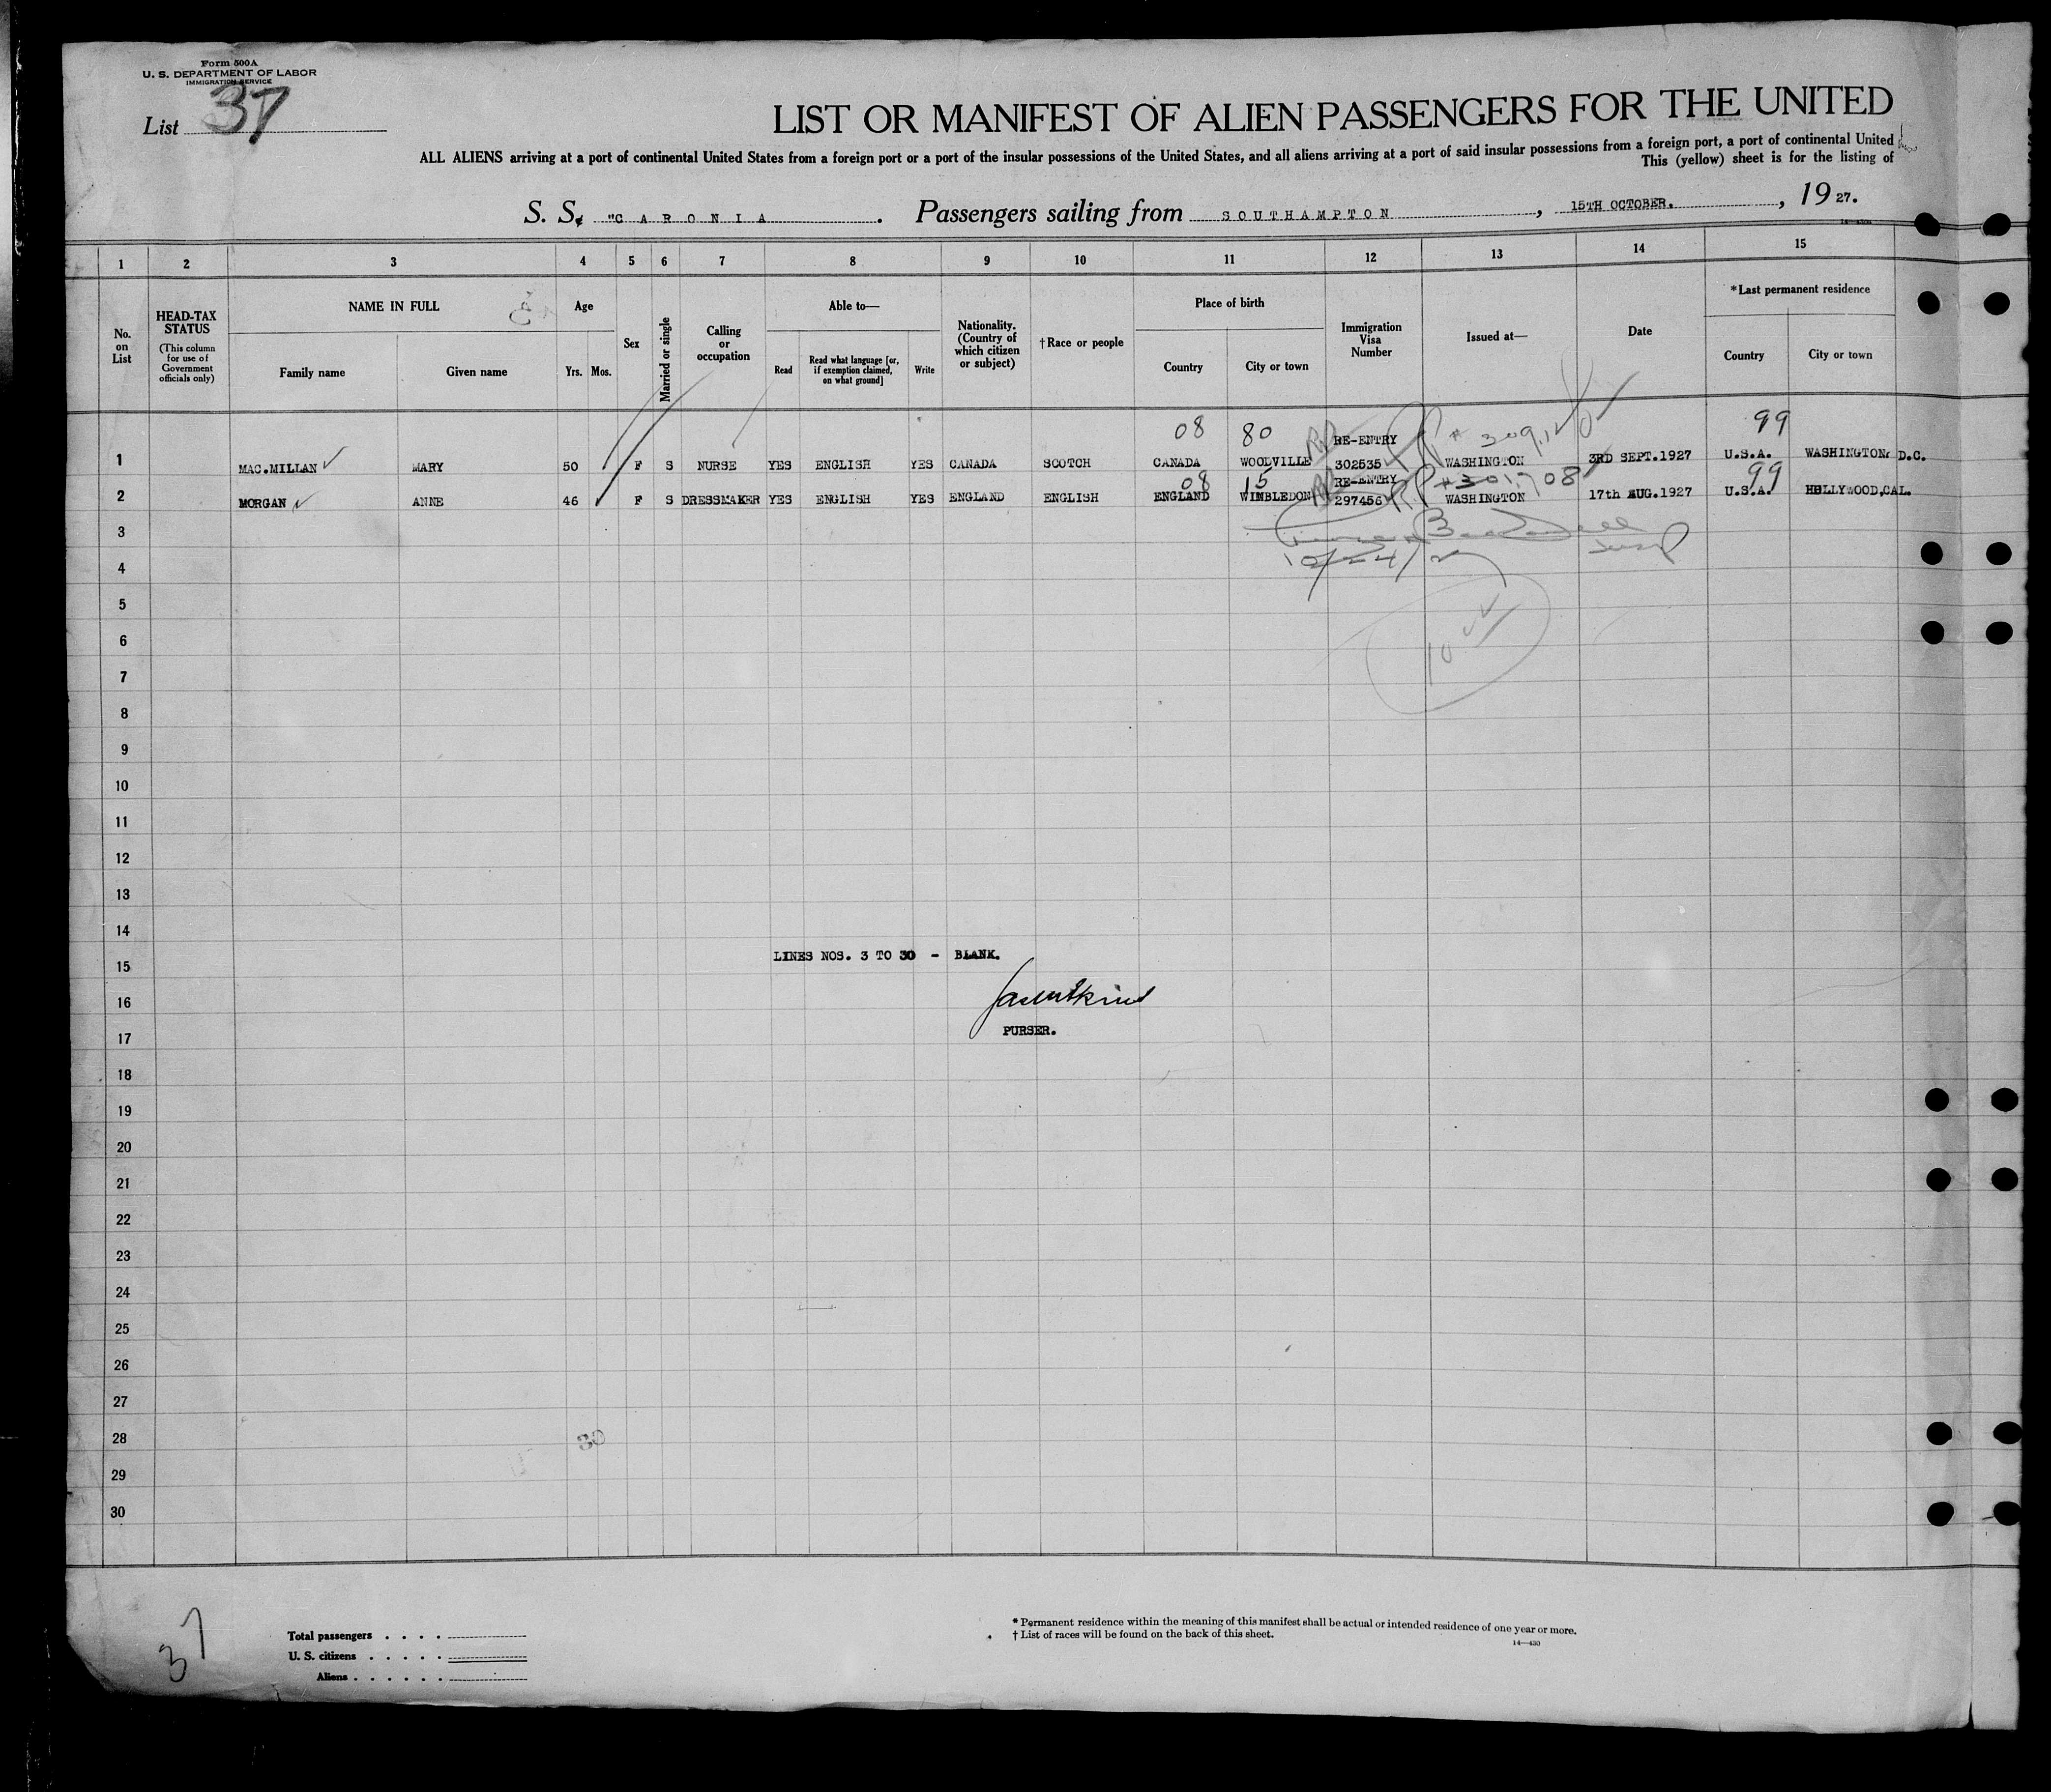 Form 500A
U. S. DEPARTMENT OF LABOR
IMMIGRATION SERVICE
List 37
LIST OR MANIFEST OF ALIEN PASSENGERS FOR THE UNITED
ALL ALIENS arriving at a port of continental United States from a foreign port or a port of the insular possessions of the United States, and all aliens arriving at a port of said insular possessions from a foreign port, a port of continental United
This (yellow) sheet is for the listing of
S. S. "CARONIA . Passengers sailing from SOUTHAMPTON , 15TH OCTOBER. , 19 27.
1 2 3 4 5 6 7 8 9 10 11 12 13 14 15
No. on List
HEAD-TAX STATUS
(This column for use of Government officials only)
NAME IN FULL
Family name Given name
Age
Yrs. Mos.
Sex
Married or single
Calling or occupation
Able to—
Read
Read what language [or, if exemption claimed, on what ground]
Write
Nationality. (Country of which citizen or subject)
† Race or people
Place of birth
Country City or town
Immigration Visa Number
Issued at—
Date
* Last permanent residence
Country City or town
08 80 99
1 MAC.MILLAN MARY 50 F S NURSE YES ENGLISH YES CANADA SCOTCH CANADA WOODVILLE RE-ENTRY 302535 WASHINGTON 3RD SEPT.1927 U.S.A. WASHINGTON, D.C.
08 15 99
2 MORGAN ANNE 46 F S DRESSMAKER YES ENGLISH YES ENGLAND ENGLISH ENGLAND WIMBLEDON RE-ENTRY 297456 WASHINGTON 17th AUG.1927 U.S.A. HOLLYWOOD,CAL.
3
10/24/27
4
5
6
7
8
9
10
11
12
13
14
LINES NOS. 3 TO 30 - BLANK.
15
16
PURSER.
17
18
19
20
21
22
23
24
25
26
27
28 30
29
30
37
Total passengers . . . .
U. S. citizens . . . . .
Aliens . . . . . .
* Permanent residence within the meaning of this manifest shall be actual or intended residence of one year or more.
† List of races will be found on the back of this sheet.
14—430